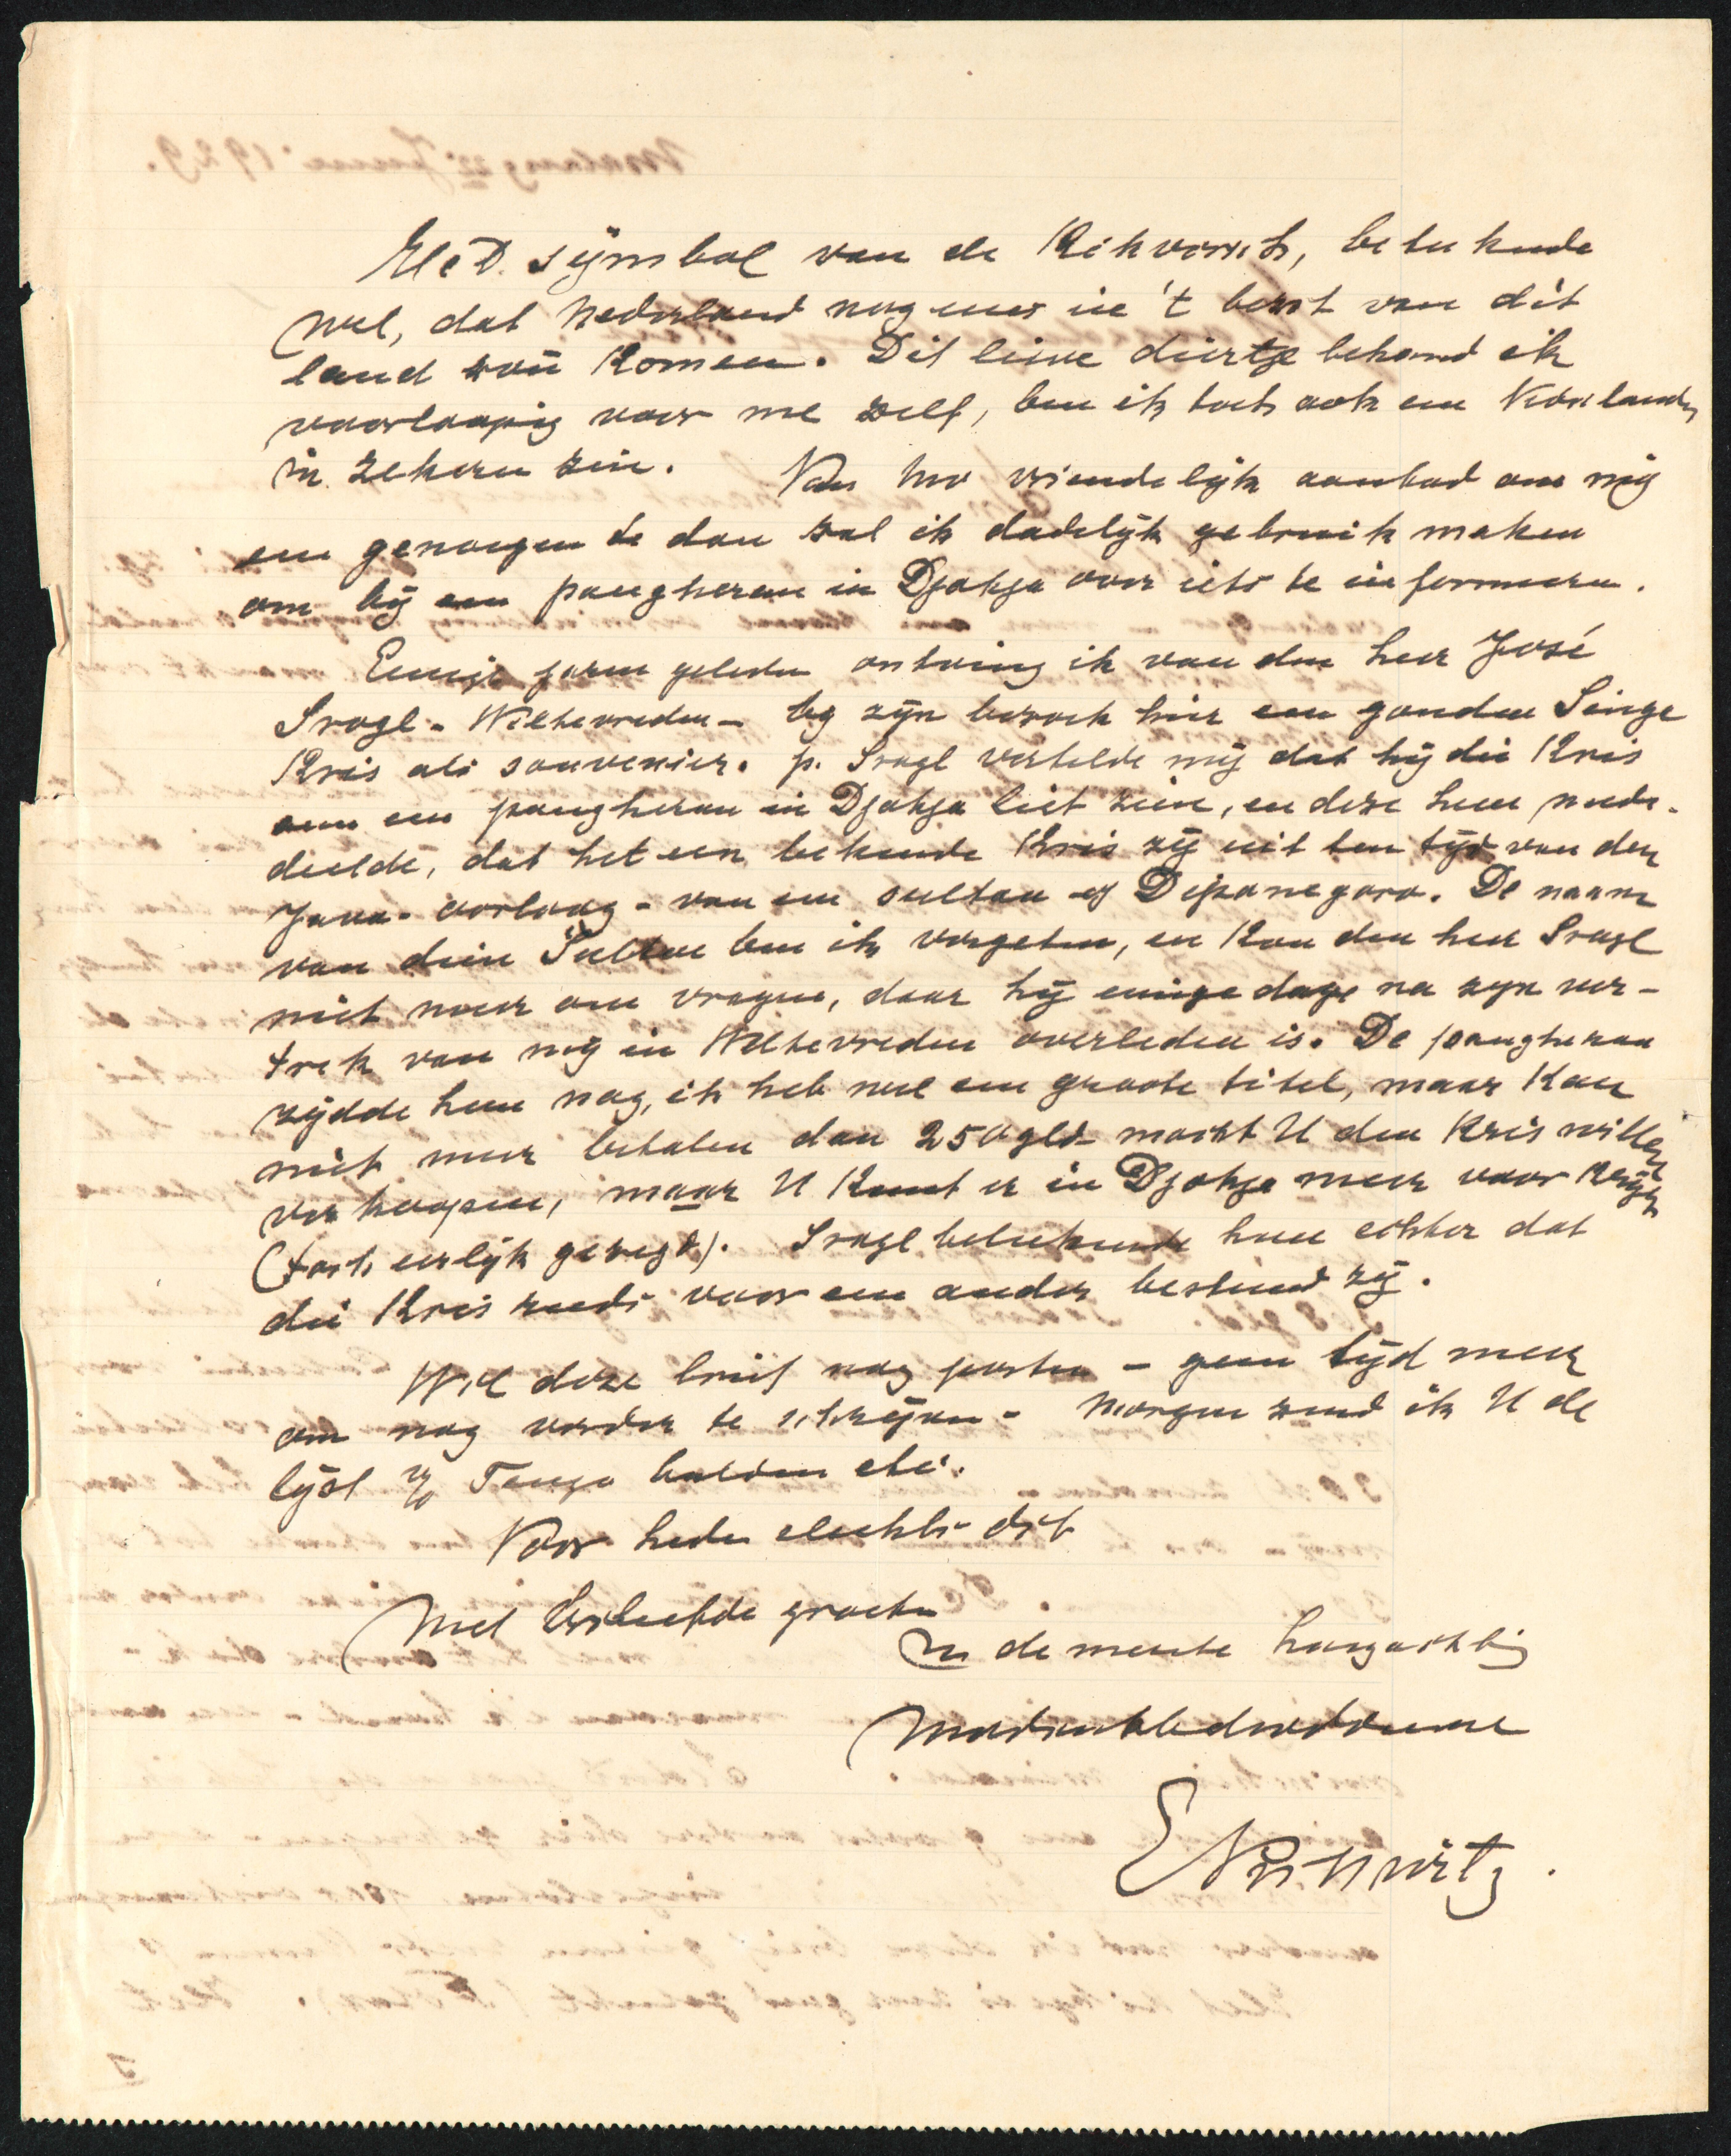 Het symbol van de Kikvorsch, beteekende
wel, dat Nederland nog eens in 't bezit van dit
land zoü komen. Dit lieve diertje behoud ik
voorloopig voor me zelf, ben ik toch ook een
in zekeren zin. Van Uw vriendelijk aanbod om mij
een genoegen te doen zal ik dadelijk gebruik maken
om bij een pangheran in Djokja over iets te informeren.
Eenige jaren geleden ontving ik van den heer José
Sragl - Weltevreden - bij zijn bezoek hier een gouden Singo
Kris als souvenier. p. Sragl vertelde mij dat hij die Kris
aan een pangheran in Djokja liet zien, en deze hem mede-
deelde, dat het een bekende Kris zij uit den tijd van den
Java-oorloog - van een sultan of Dipanegoro. De naam
van dien Sultan ben ik vergeten, en kan den heer Sragl
niet meer om vragen, daar hij eenige dage na zijn ver-
trek van mij in Weltevreden overleden is. De pangheran
zijdde hem nog, ik heb wel een groote titel, maar kan
niet meer betalen dan 250 gld mocht U den Kris willen
verkoopen, maar U kunt er in Djokja meer voor krijgen
(toch eerlijk gezegd). Sragl beteekende hem echter dat
die Kris reeds voor een ander bestemd zij.
Wil deze brief nog posten - geen tijd meer
om nog verder te schrijven - Morgen zend ik U de
lijst Tanga etc.
Voor heden slechts dit
Met beleefde groeten
de meeste hoogachting